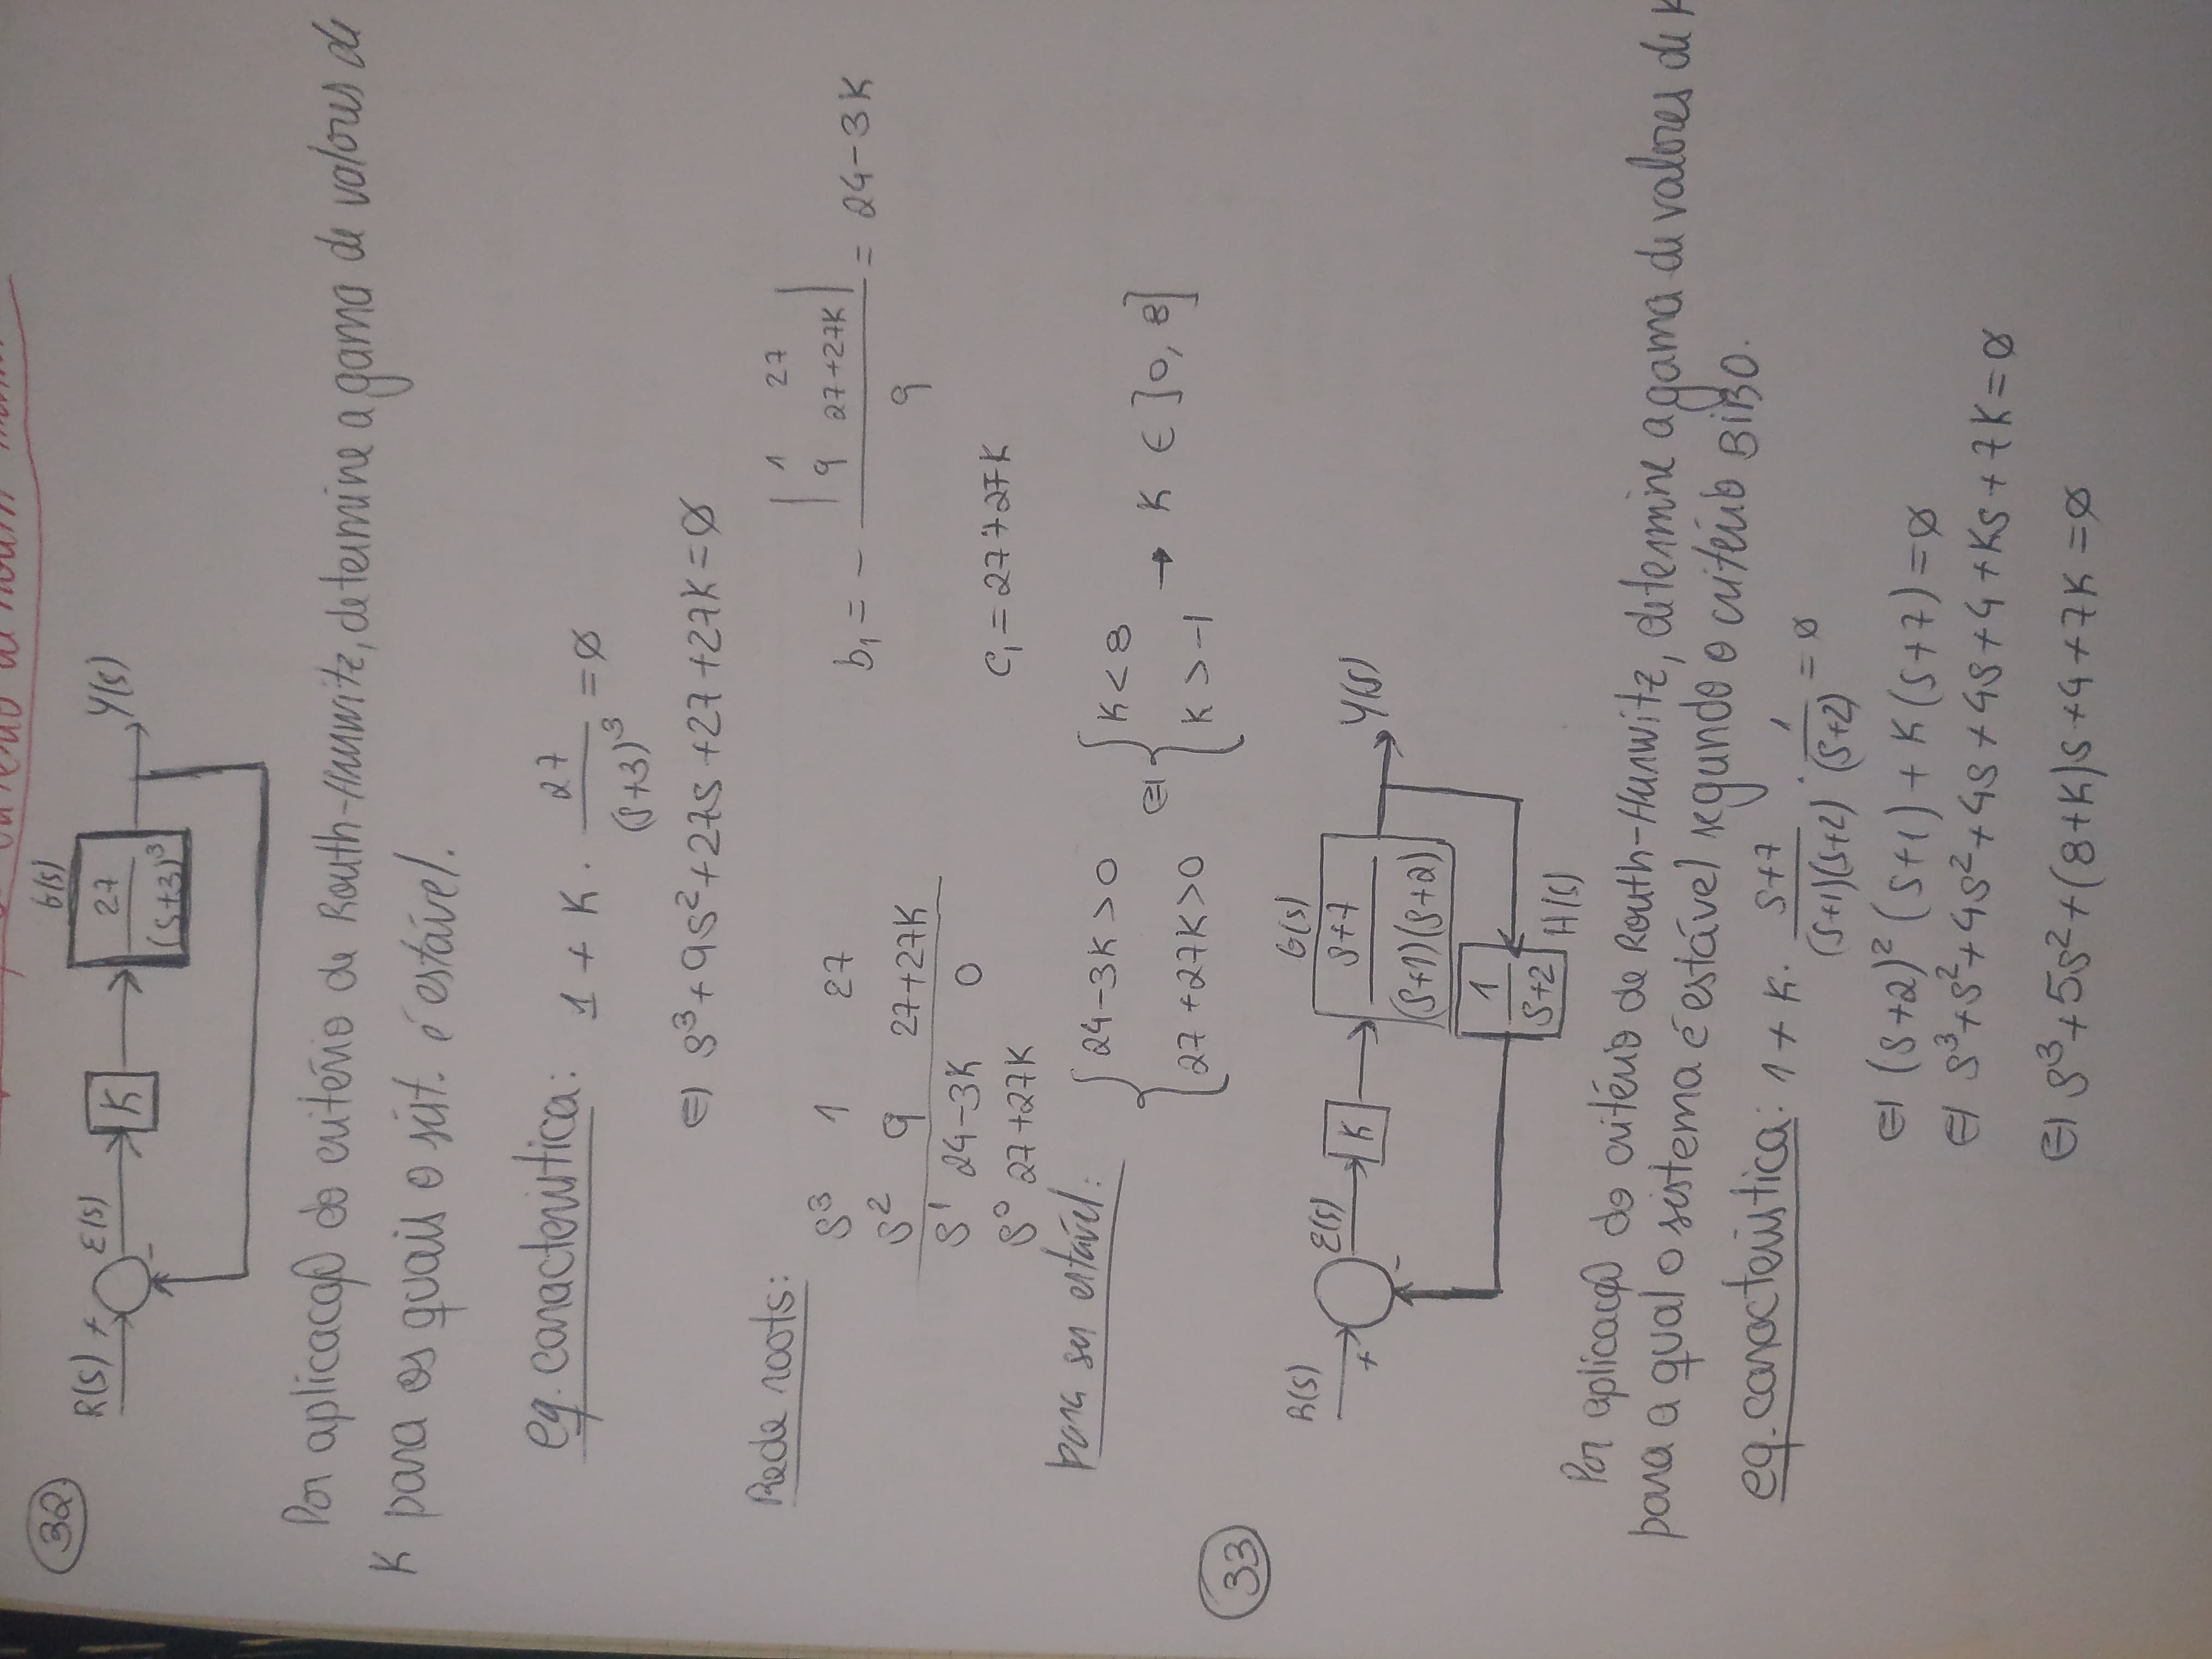 critério de Routh
32
R(s) + E(s) K G(s) 27/(s+3)³ Y(s)
-
Por aplicacação do critério de Routh-Hurwitz, determine a gama de valores de
K para os quais o sist. é estável.
eq. característica: 1 + K · 27/(s+3)³ = ∅
⇔ s³+9s²+27s+27+27K=∅
Rede roots:
s³ 1 27
s² 9 27+27K
s¹ 24-3K 0
s⁰ 27+27K
b₁ = - |1 27; 9 27+27K| / 9 = 24-3K
c₁ = 27+27K
para ser estável: { 24-3K>0 ⇔ { K<8 → K ∈ ]0, 8]
27+27K>0 K>-1
33
R(s) + E(s) K G(s) s+7/(s+1)(s+2) Y(s)
-
1/s+2 H(s)
Por aplicação do critério de Routh-Hurwitz, determine a gama de valores de K
para a qual o sistema é estável segundo o critério BIBO.
eq. característica: 1 + K · s+7/(s+1)(s+2) · 1/(s+2) = ∅
⇔ (s+2)² (s+1) + K(s+7) = ∅
⇔ s³+s²+4s²+4s+4s+4+Ks+7K=∅
⇔ s³+5s²+(8+K)s+4+7K=∅